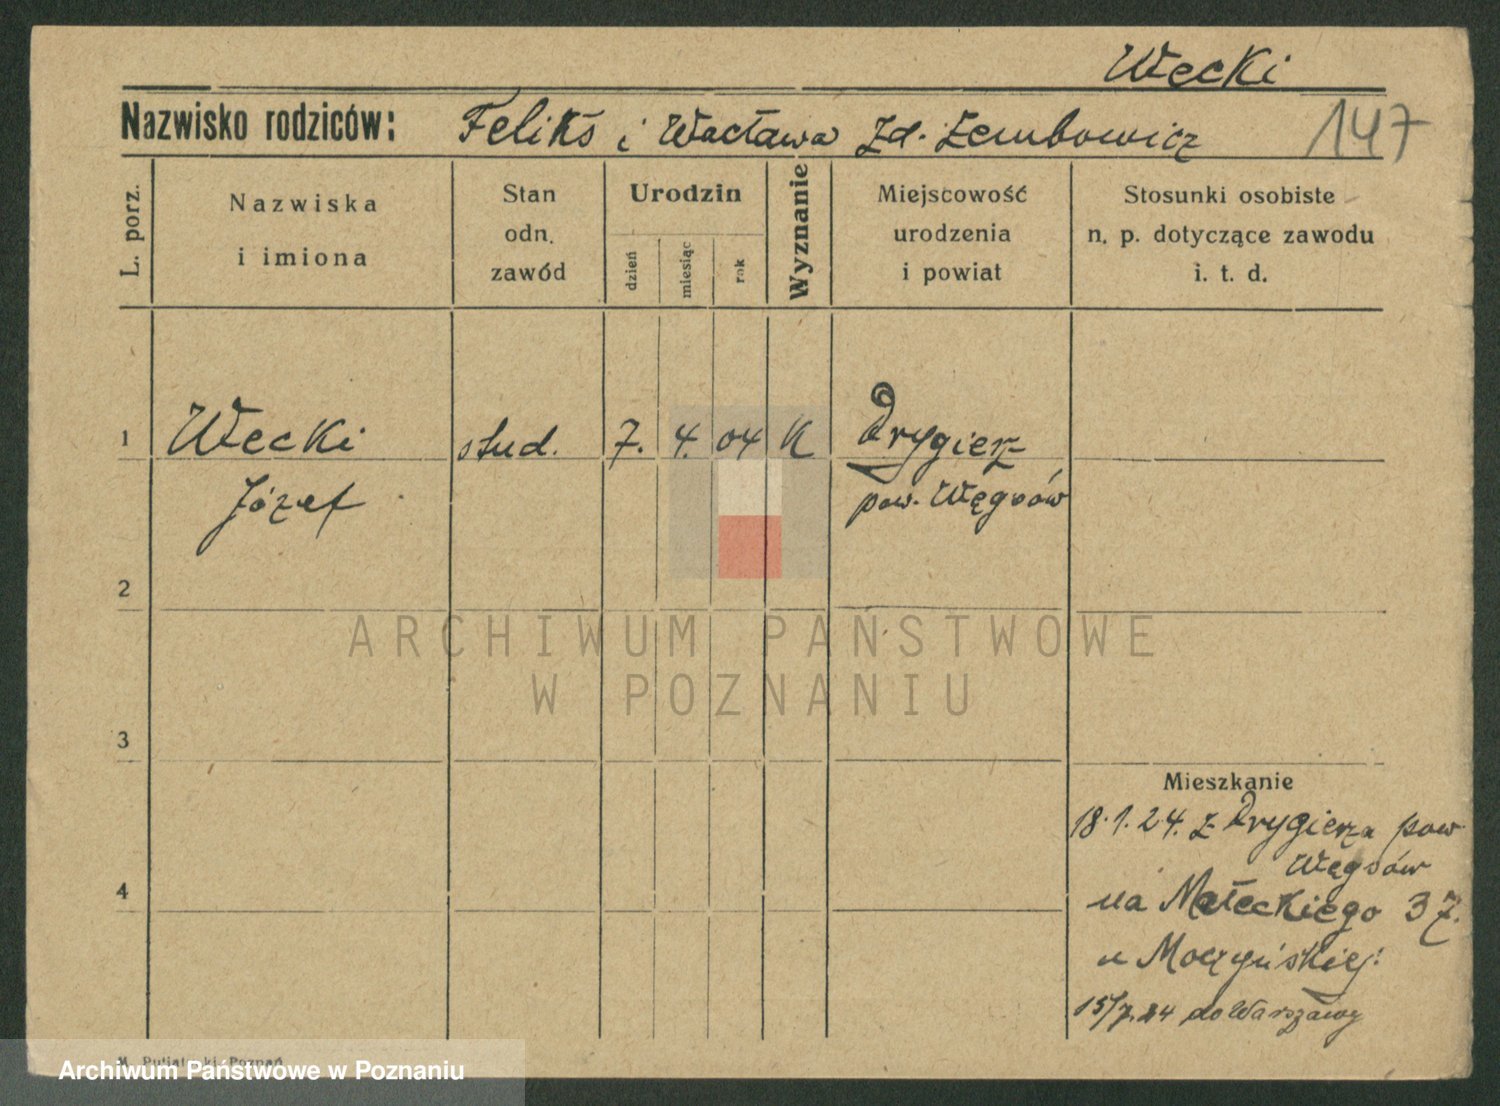 Węcki
Nazwisko rodziców: Feliks i Wacława zd. Zembowicz 147
L. porz.
Nazwiska
i imiona
Stan
odn.
zawód
Urodzin
dzień
miesiąc
rok
Wyznanie
Miejscowość
urodzenia
i powiat
Stosunki osobiste
n. p. dotyczące zawodu
i. t. d.
1 Węcki stud. 7. 4. 04 K Drygierz
Józef pow. Węgrów
2
ARCHIWUM PAŃSTWOWE
W POZNANIU
3
Mieszkanie
18.1.24. z Drygierza pow
Węgrów
4
na Małeckiego 37.
u Moczyńskiej
15/7.24 do Warszawy
M. Putiatycki, Poznań
Archiwum Państwowe w Poznaniu